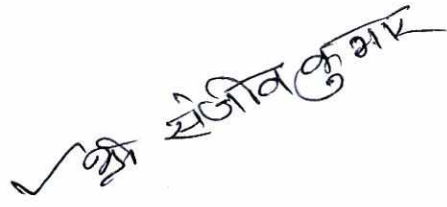 श्री संजीव कुमार